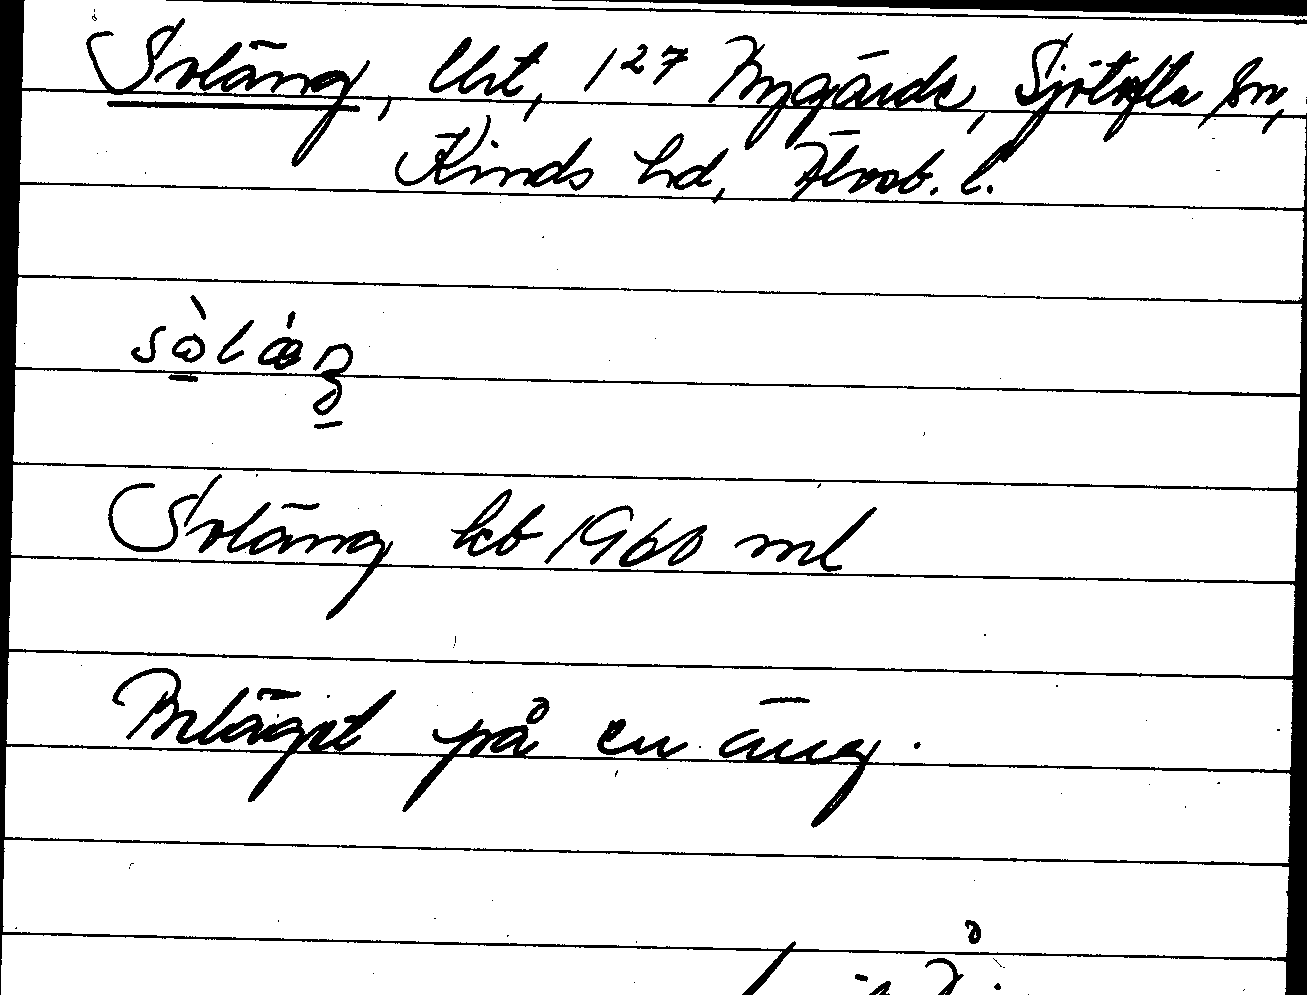 Soläng, lht, 1²⁷ Nygårds, Sjötofta sn,
Kinds hd, Älvsb. l.
sòlǽŋ
Soläng kb 1960 ml
Beläget på en äng.